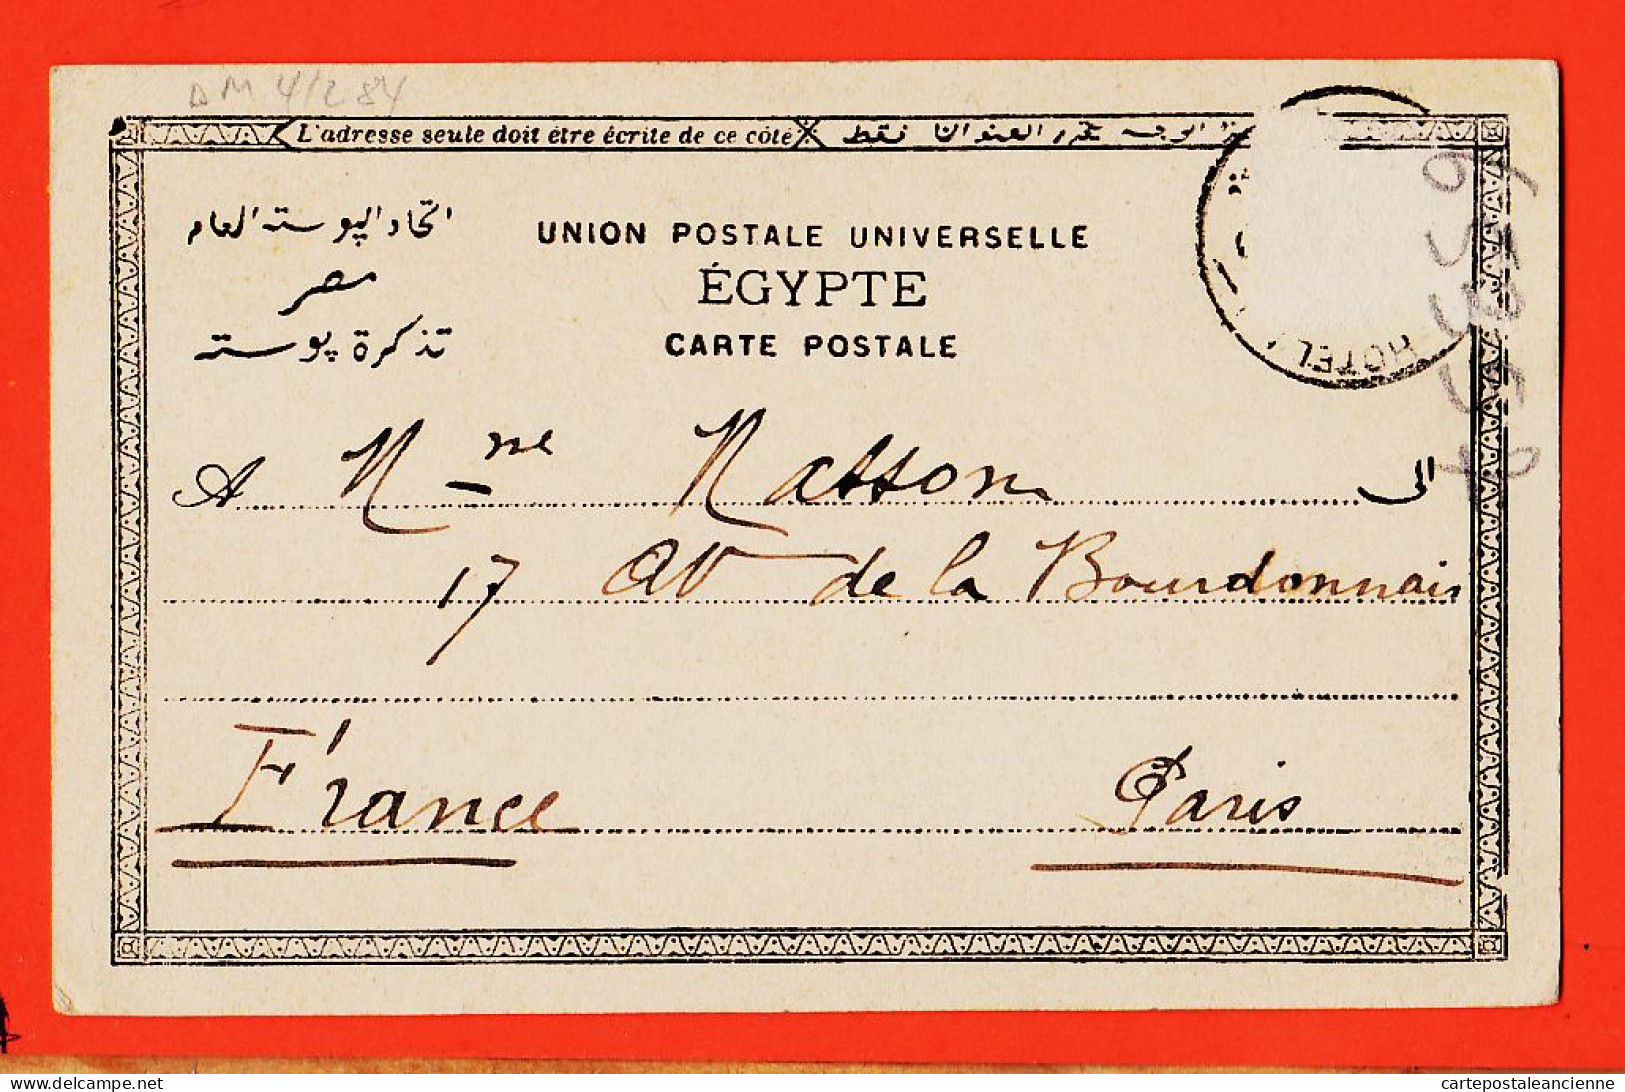 DM 4/284
L'adresse seule doit être écrite de ce côté
الوجه تحرر العنوان فقط
اتحاد البوسته العام
مصر
تذكرة بوسته
UNION POSTALE UNIVERSELLE
ÉGYPTE
CARTE POSTALE
HOTEL
A Mme Masson الى
17 av de la Bourdonnais
France Paris
delcampe.net
cartepostaleancienne